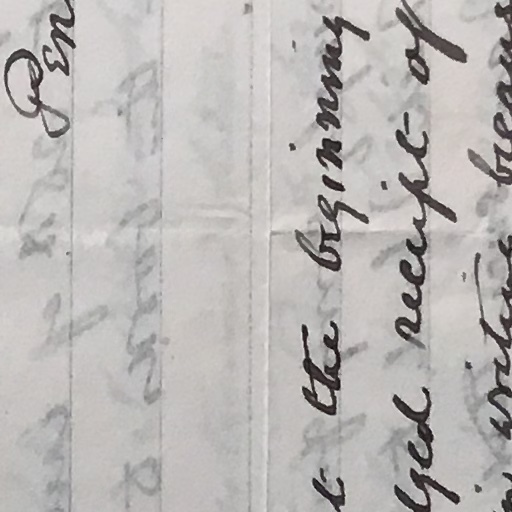 Pen
t the beginning
lged receipt of
in writing becaus